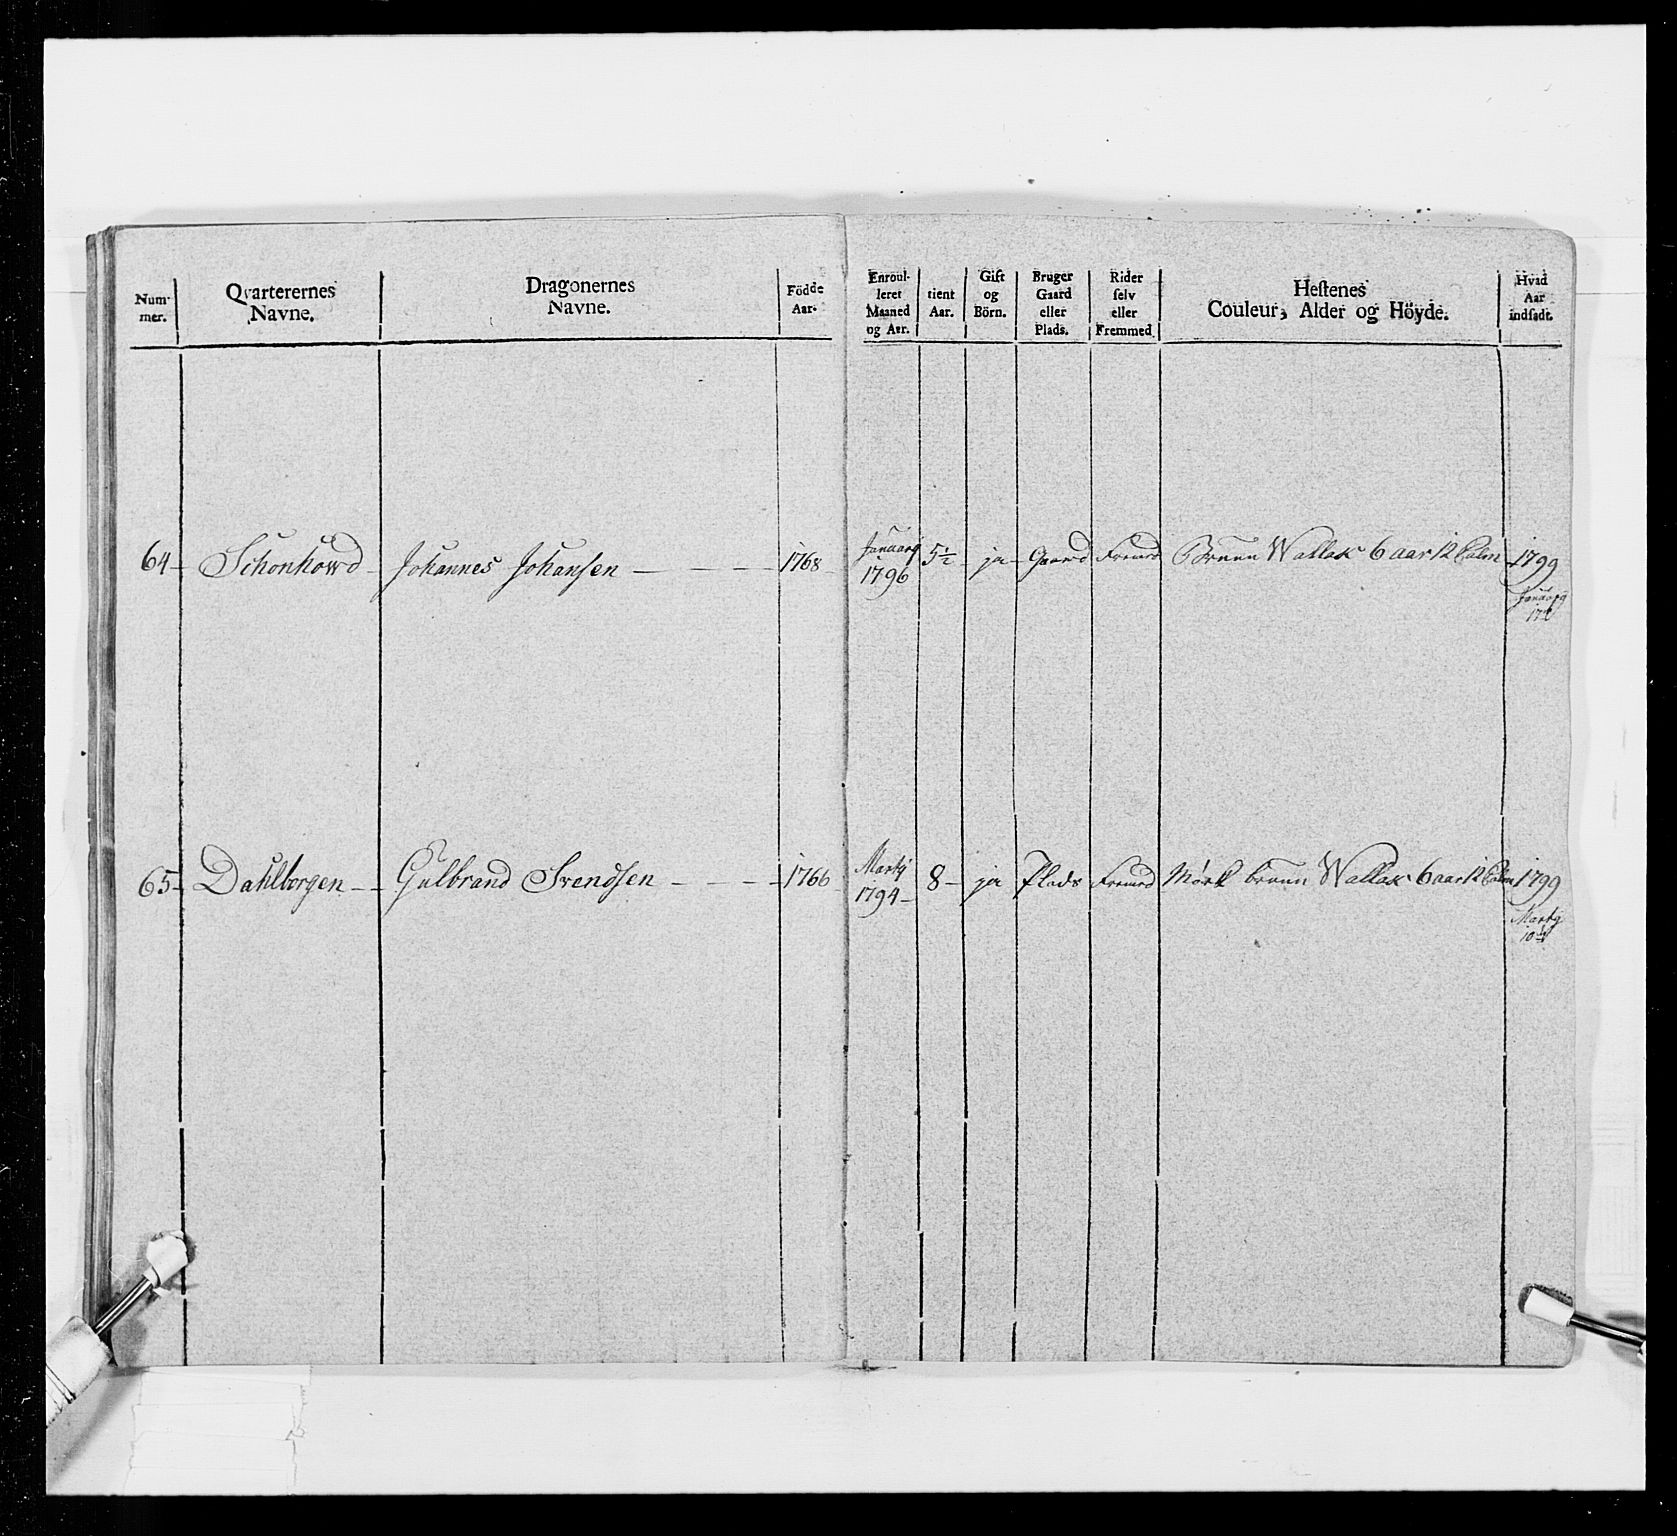 Num-
mer.
Qvarterernes
Navne.
Dragonernes
Navne.
Födde
Aar.
Enroul-
leret
Maaned
og Aar.
tient
Aar.
Gift
og
Börn.
Bruger
Gaard
eller
Plads.
Rider
selv
eller
Fremmed
Hestenes
Couleur, Alder og Höyde.
Hvad
Aar
indsadt.
64 Schonhowd Johannes Johansen 1768 January 1796 5½ ja Gaard Fremed Bruun Wallak 6 aar 12 Palm 1799
January
65 Dahlborgen Gulbrand Svendsen 1766 Marty 1794 8 ja Plads Fremed Mørk bruun Wallak 6 aar 12 Palm 1799
Marty